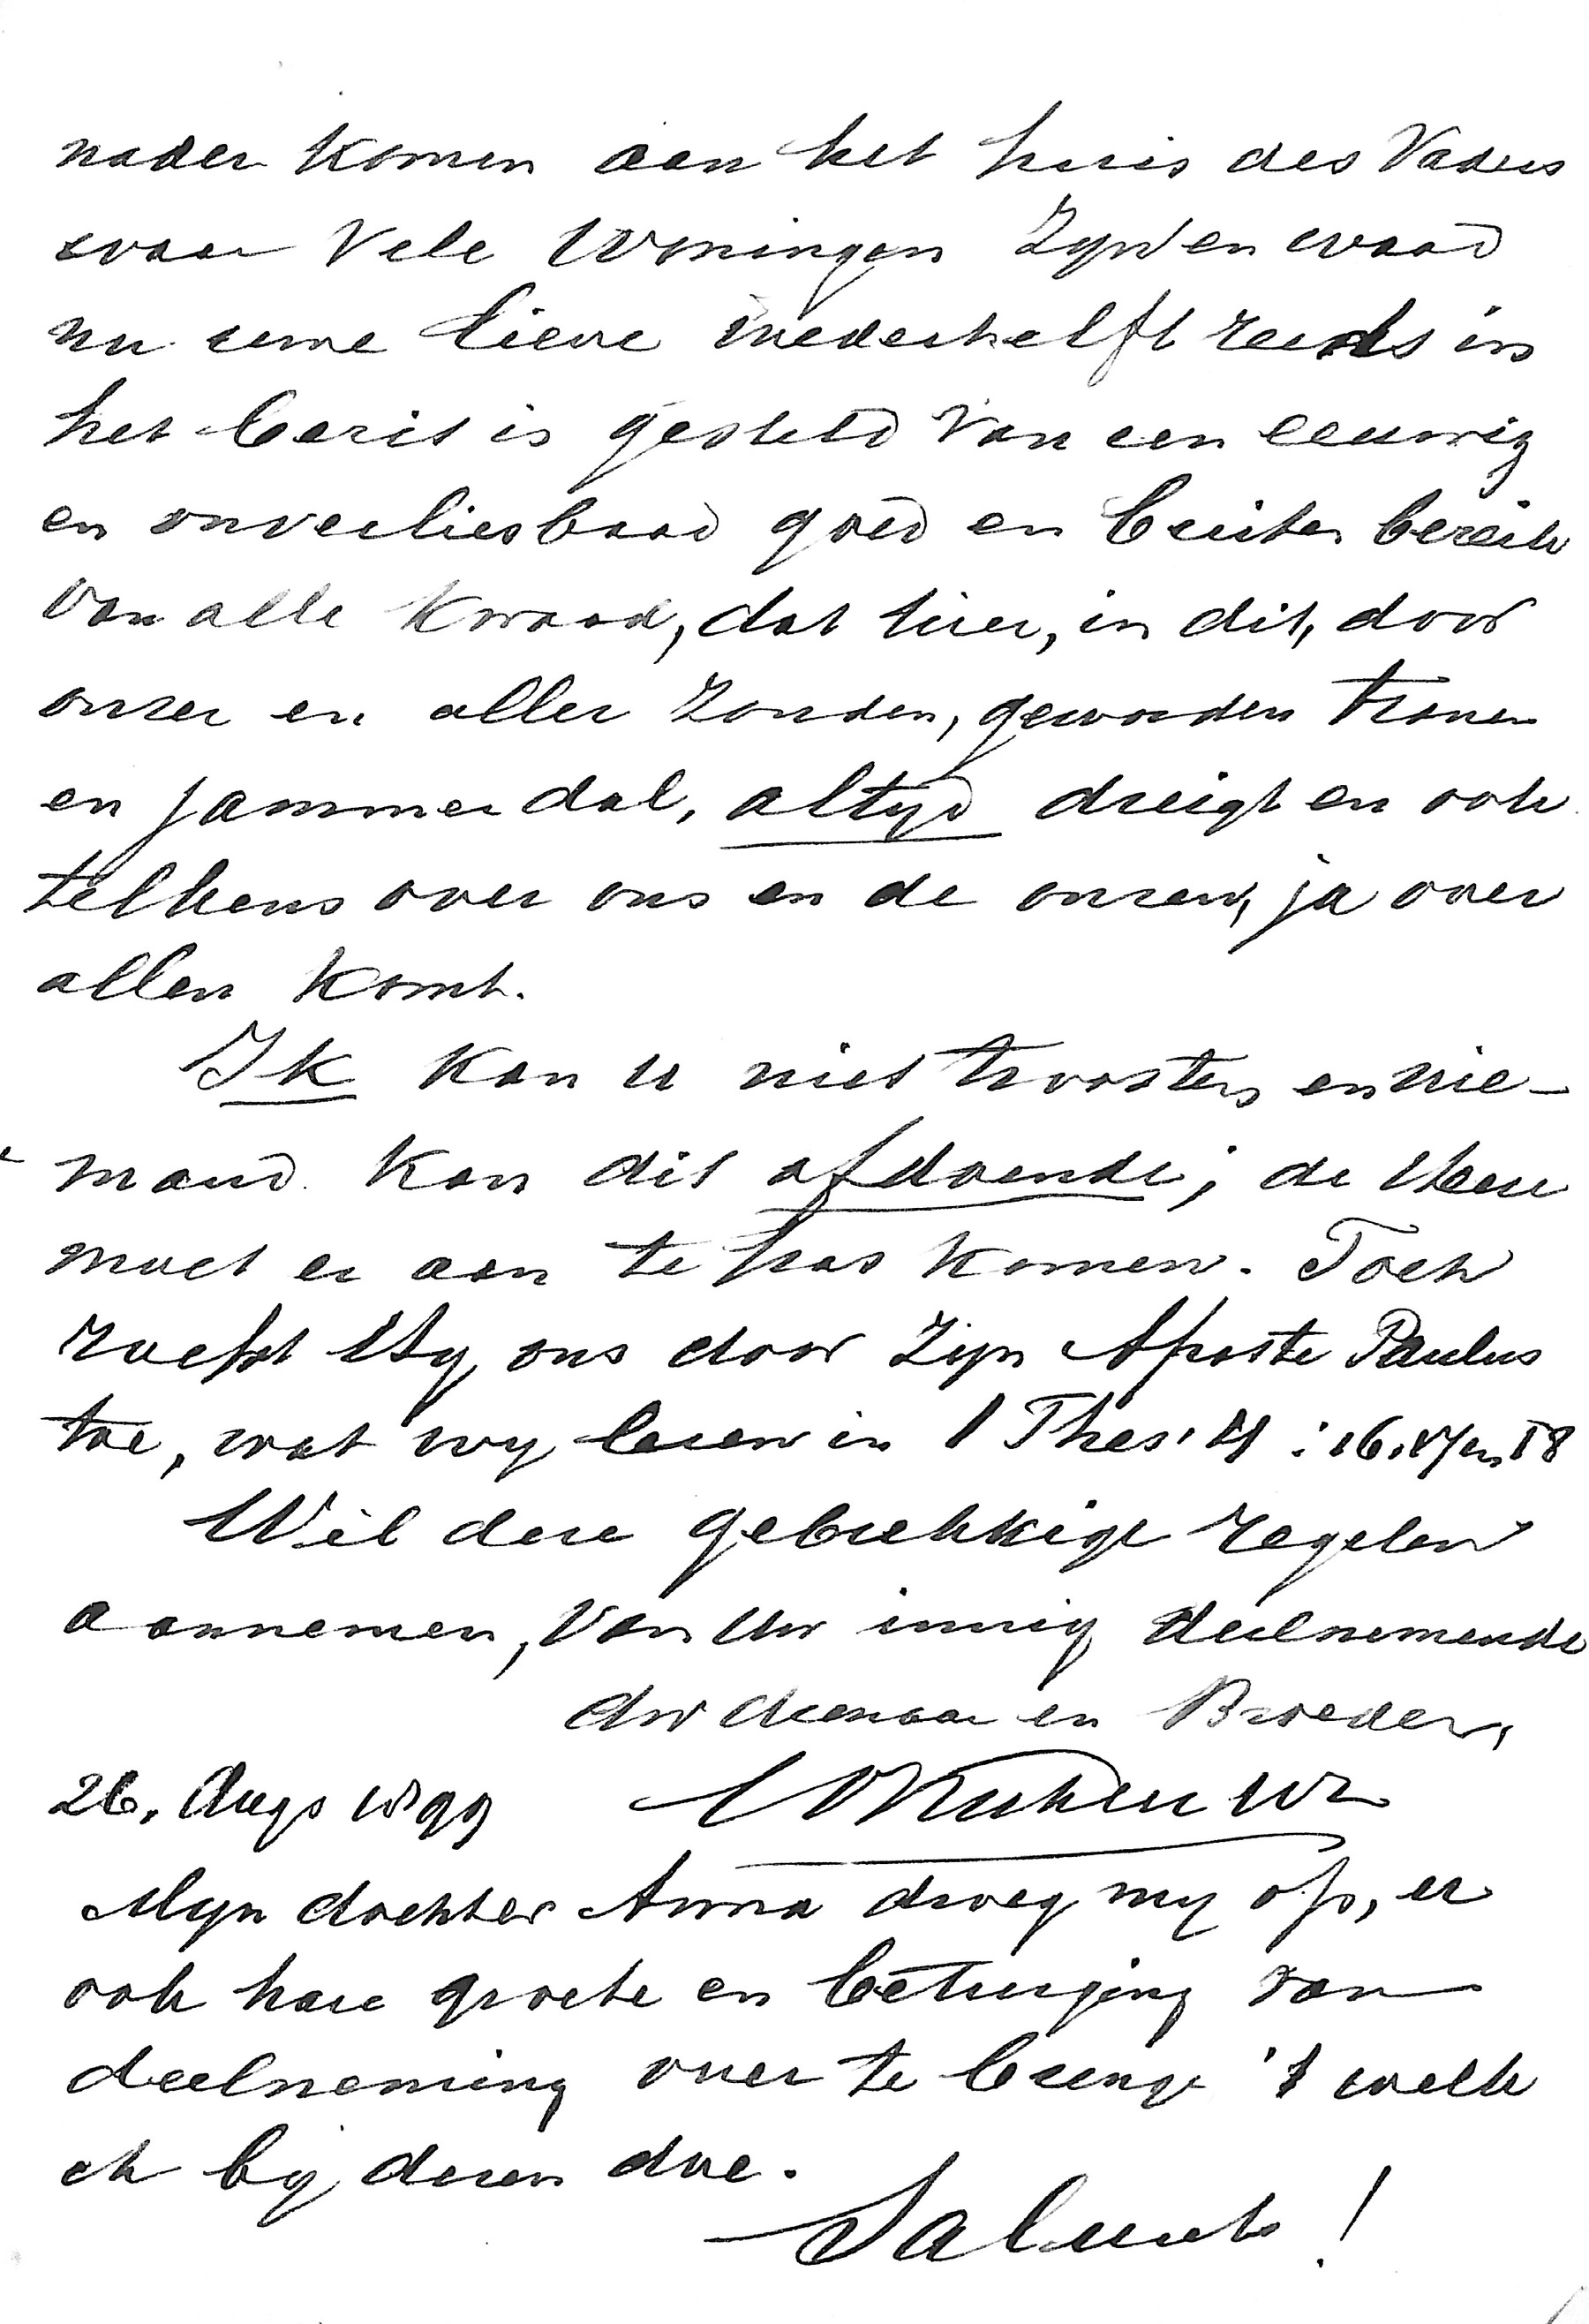 nader komen aan het huis des Vaders
waar Vele Woningen Zyn en waar
nu uwe lieve wederhelft reeds in
het bezit is gesteld van een eeuwig
en onverliesbaar goed en buiten bereik
van alle kwaad, dat hier, in dit, door
onzer en aller zonden, geworden tranen
en jammerdal, altyd dreigt en ook
telkens over ons en de onzen, ja over
allen komt.
Ik kan u niet troosten en nie-
mand kan dit afdoende; de Heere
moet er aan te pas komen. Toch
roept Hy ons door Zijn Aposte Paulus
toe, wat wy lezen in 1 Thes. 4 : 16.17 en 18
Wil deze gebrekkige regelen
aannemen, van Uw innig deelnemende
dw dienaar en Broeder,
26. Augs 1899
Mijn dochter Anna droeg my op, er
ook hare groete en betuiging van
deelneming over te brenge 't welk
ik by dezen doe.
Saluut!